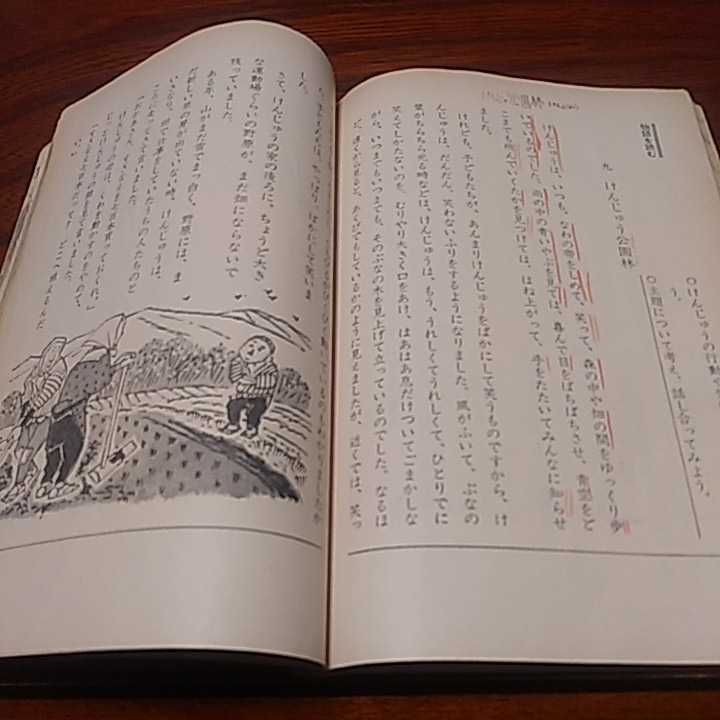 物語を読む
○けんじゅうの行動
う。
○主題について考え、話し合ってみよう。
九 けんじゅう公園林
けんじゅうは、いつも、なわの帯をしめて、笑って、森の中や畑の間をゆっくり歩
いているのでした。雨の中の青いやぶを見ては、喜んで目をぱちぱちさせ、青空をど
こまでも飛んでいくたかを見つけては、はね上がって、手をたたいてみんなに知らせ
ました。
けれども、子どもたちが、あんまりけんじゅうをばかにして笑うものですから、け
んじゅうは、だんだん、笑わないふりをするようになりました。風がふいて、ぶなの
葉がちらちら光る時などは、けんじゅうは、もう、うれしくてうれしくて、ひとりでに
笑えてしかたないのを、むりやり大きく口をあけ、はあはあ息だけついてごまかしな
がら、いつまでもいつまでも、そのぶなの木を見上げて立っているのでした。なるほ
ど、遠くから見ると、あくびでもしているかのように見えましたが、近くでは、笑っ
ばかにして笑いま
した。
さて、けんじゅうの家の後ろに、ちょうど大き
な運動場ぐらいの野原が、まだ畑にならないで
残っていました。
ある年、山がまだ雪でまっ白く、野原には、ま
だ新しい草の芽が出ていない時、けんじゅうは、
いきなり、田で仕事をしていたうちの人たちのと